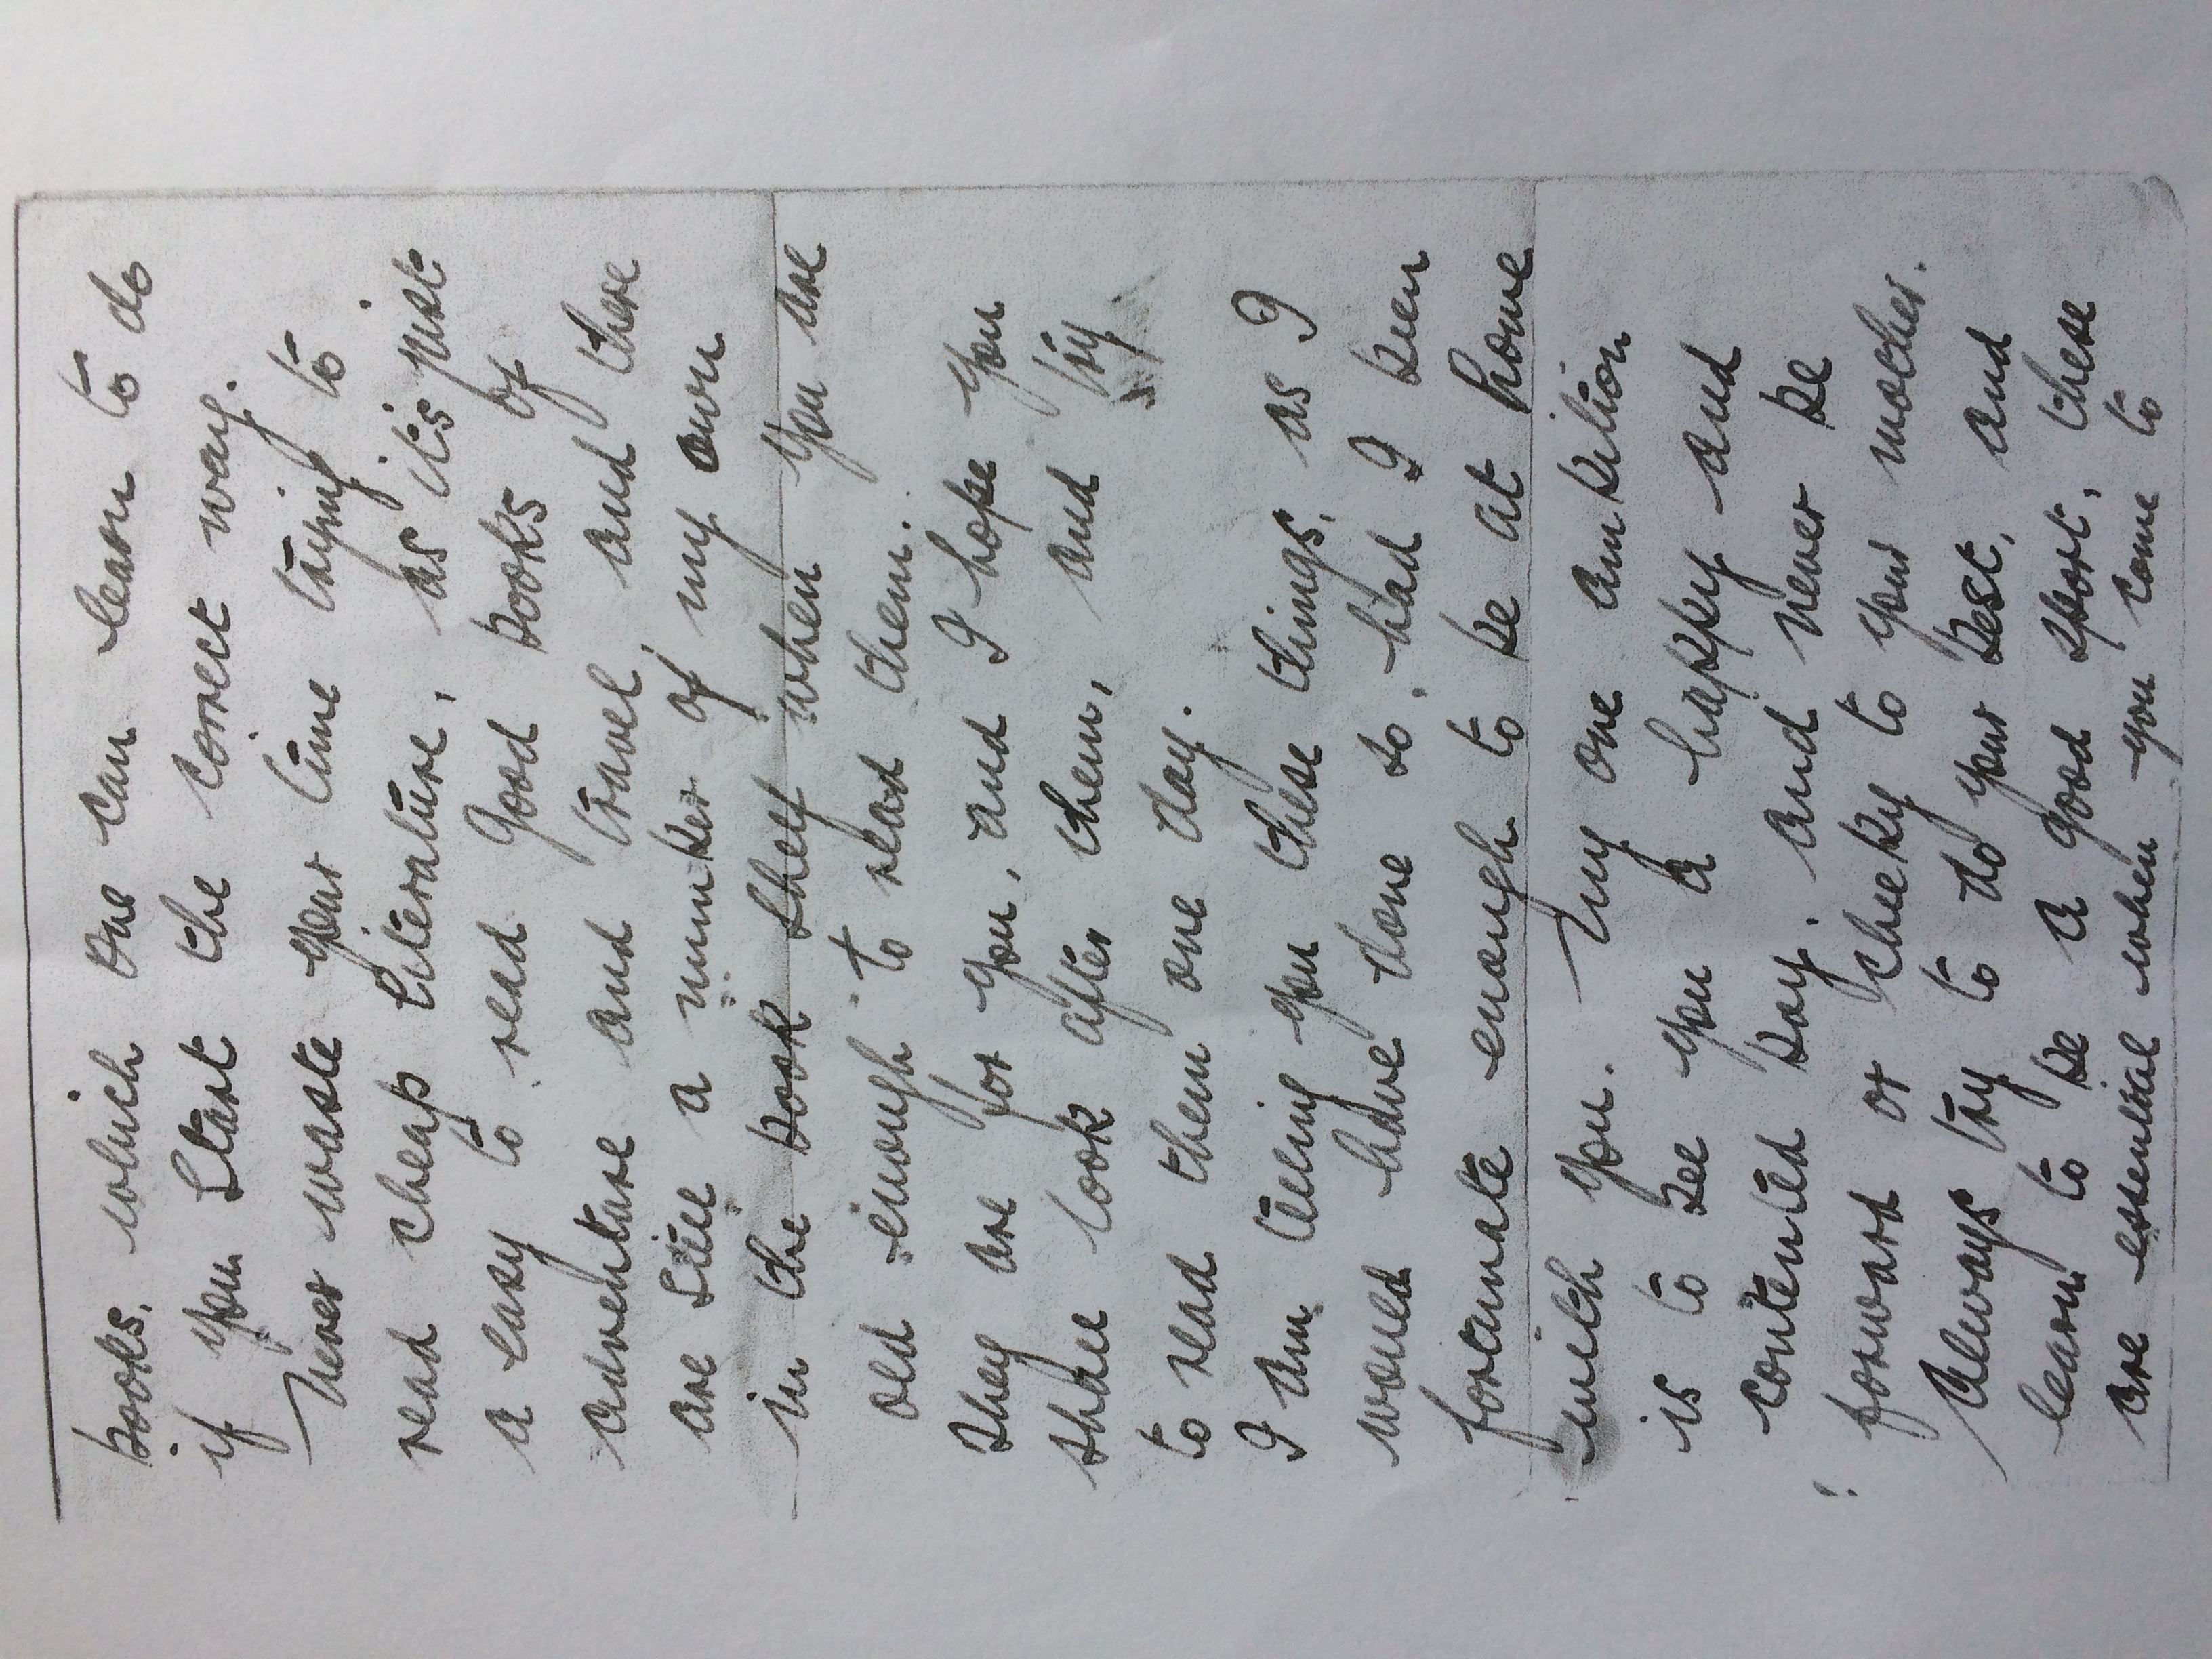 books, which one can learn to do
if you start the correct way.
Never waste your time trying to
read cheap literature, as it's just
as easy to read good books of
adventure and travel, and there
are still a number of my own
in the book shelf when you are
old enough to read them.
They are for you, and I hope you
shall look after them, and try
to read them one day.
I am telling you these things, as I
would have done so, had I been
fortunate enough to be at home
with you. My one ambition
is to see you a happy and
contented boy, and never be
forward or cheeky to your mother.
Always try to do your best, and
learn to be a good sport, these
are essential when you come to